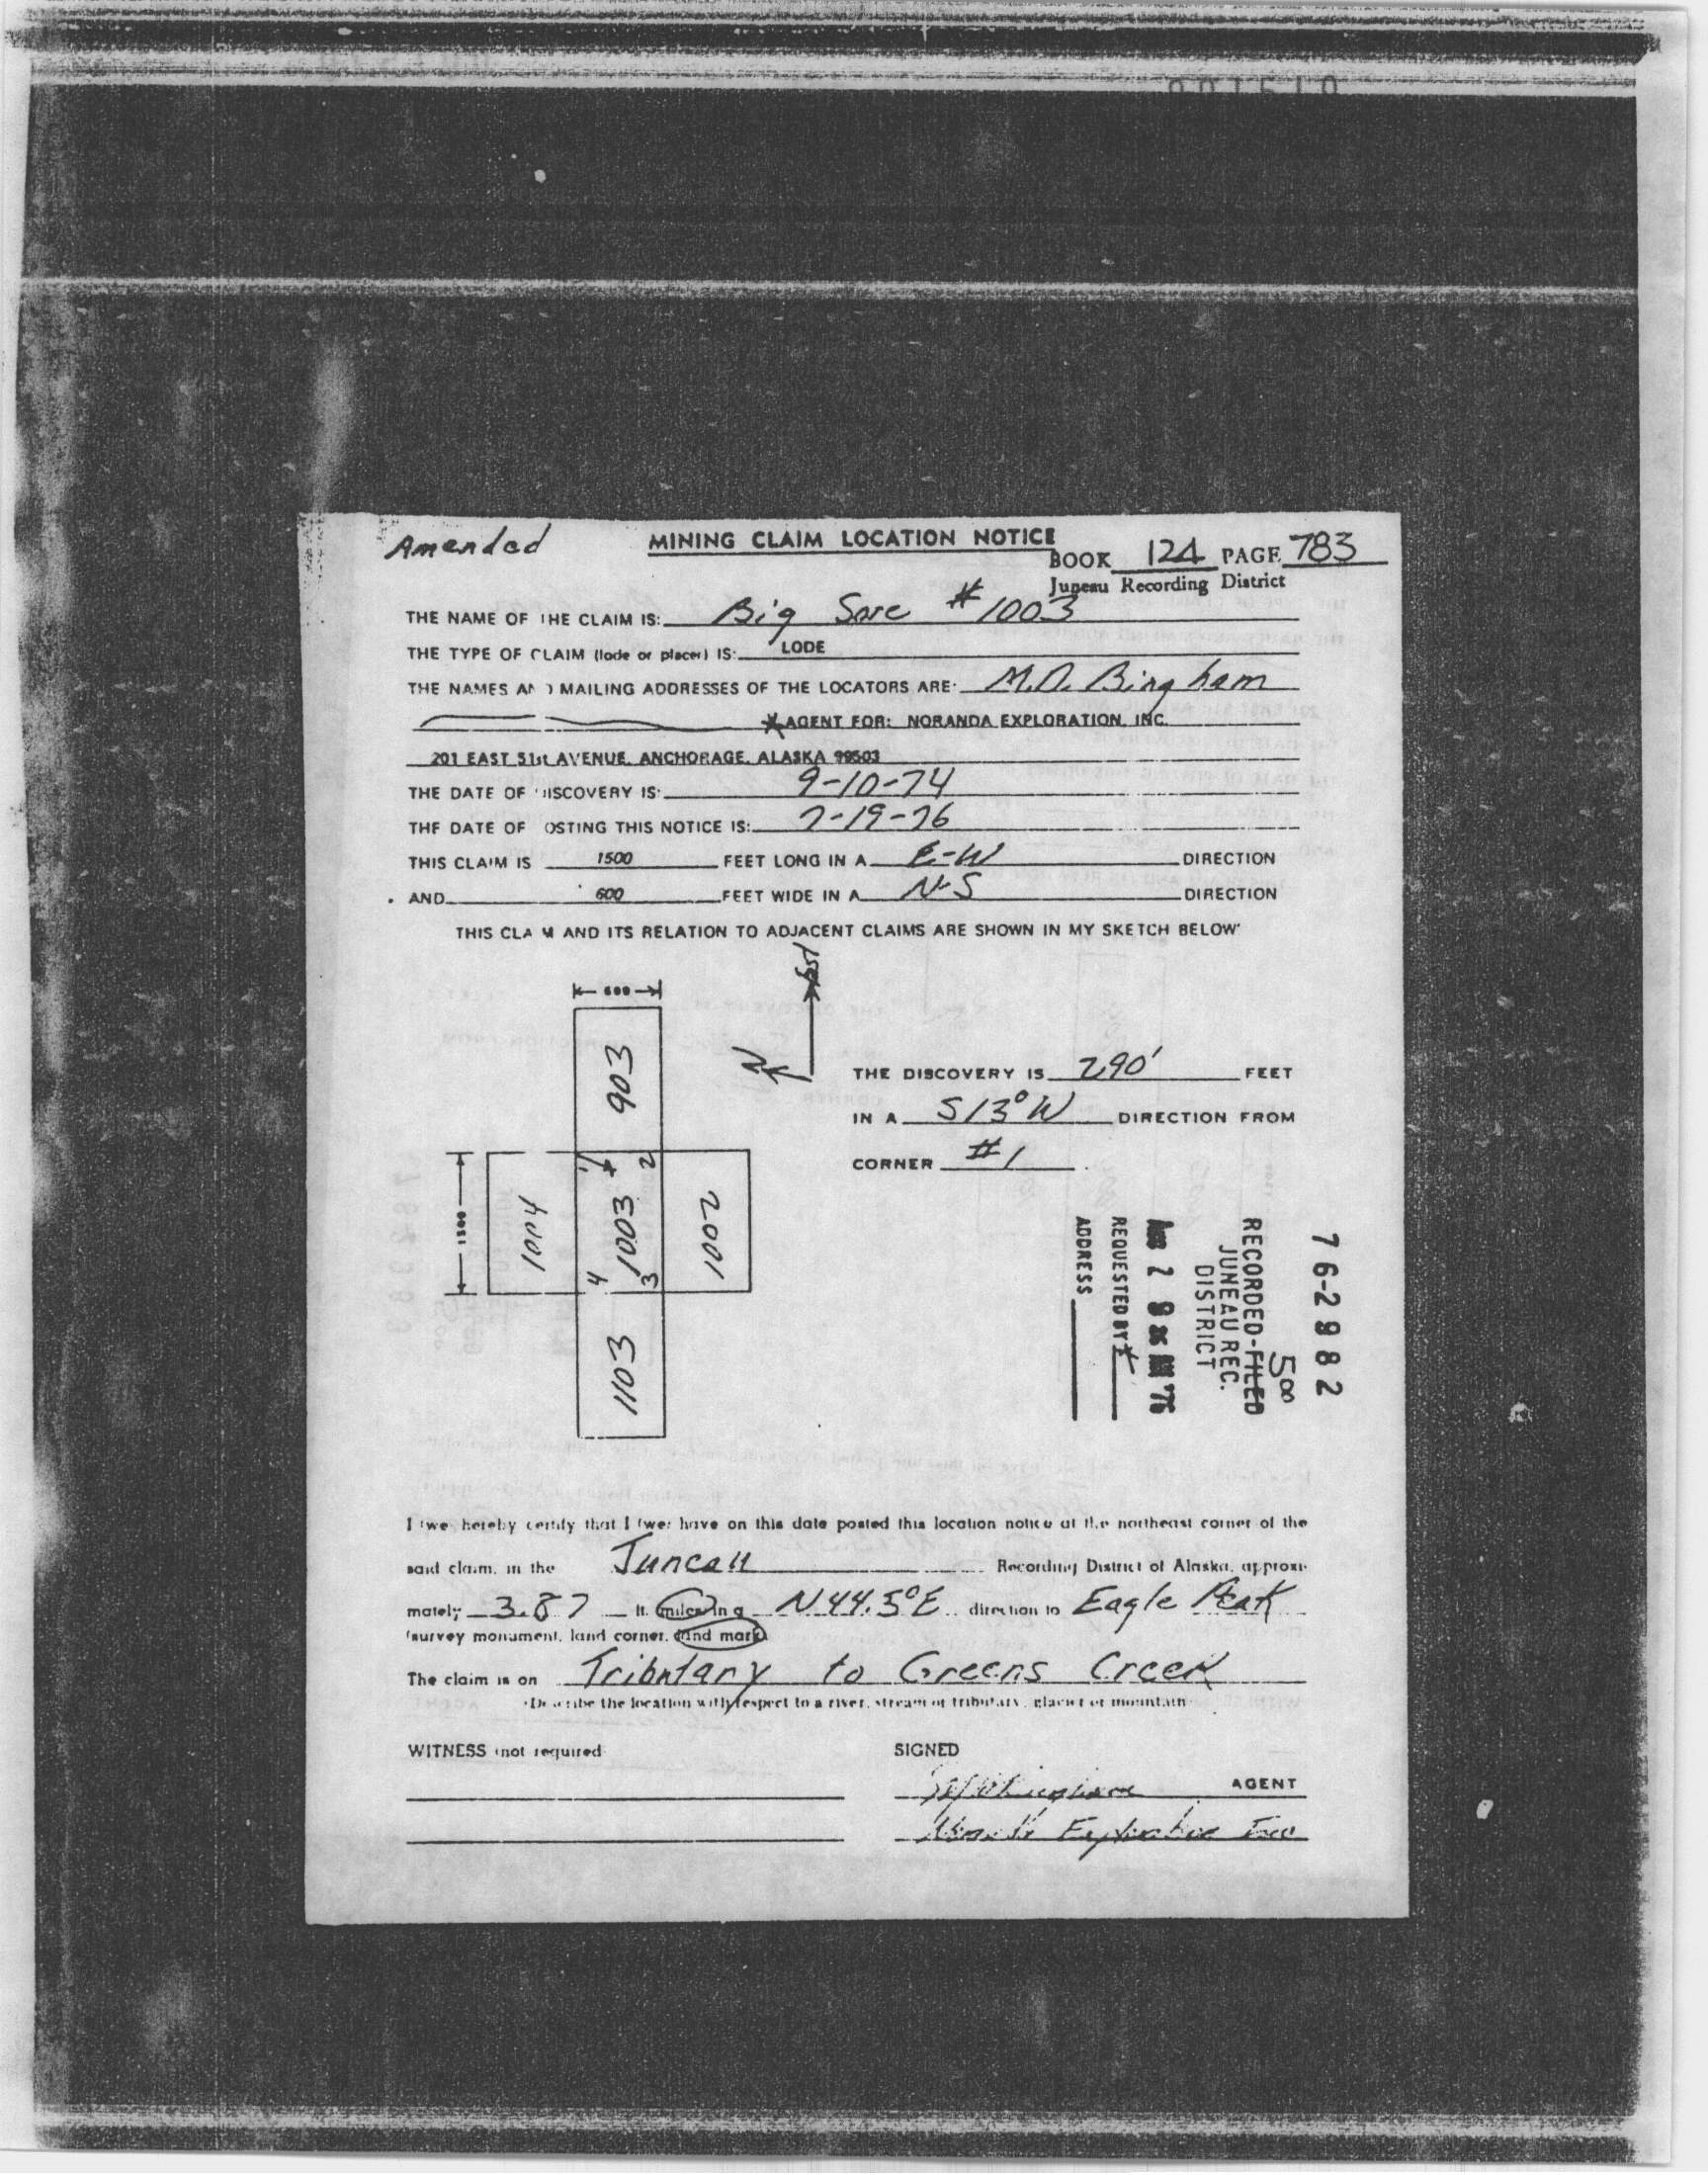 Amended
MINING CLAIM LOCATION NOTICE
BOOK 124 PAGE 783
Juneau Recording District
THE NAME OF THE CLAIM IS: Big Sore # 1003
THE TYPE OF CLAIM (lode or placer) IS: LODE
THE NAMES AND MAILING ADDRESSES OF THE LOCATORS ARE: M.D. Bingham
* AGENT FOR: NORANDA EXPLORATION, INC.
201 EAST 51st AVENUE, ANCHORAGE, ALASKA 99503
THE DATE OF DISCOVERY IS: 9-10-74
THE DATE OF POSTING THIS NOTICE IS: 7-19-76
THIS CLAIM IS 1500 FEET LONG IN A E-W DIRECTION
AND 600 FEET WIDE IN A N-S DIRECTION
THIS CLAIM AND ITS RELATION TO ADJACENT CLAIMS ARE SHOWN IN MY SKETCH BELOW:
East
N
600
903
1500
1004
1 2
1003
4 3
1002
1103
THE DISCOVERY IS 290' FEET
IN A S13°W DIRECTION FROM
CORNER #1
76-2982
5 00
RECORDED-FILED
JUNEAU REC.
DISTRICT
AUG 2 9 AM '76
REQUESTED BY *
ADDRESS
I (we) hereby certify that I (we) have on this date posted this location notice at the northeast corner of the
said claim, in the Juneau Recording District of Alaska, approxi-
mately 3.87 ft. miles in a N44.5°E direction to Eagle Peak
(survey monument, land corner, land mark)
The claim is on Tributary to Greens Creek
(Describe the location with respect to a river, stream or tributary, glacier or mountain)
WITNESS (not required)
SIGNED
AGENT
Exploration Inc